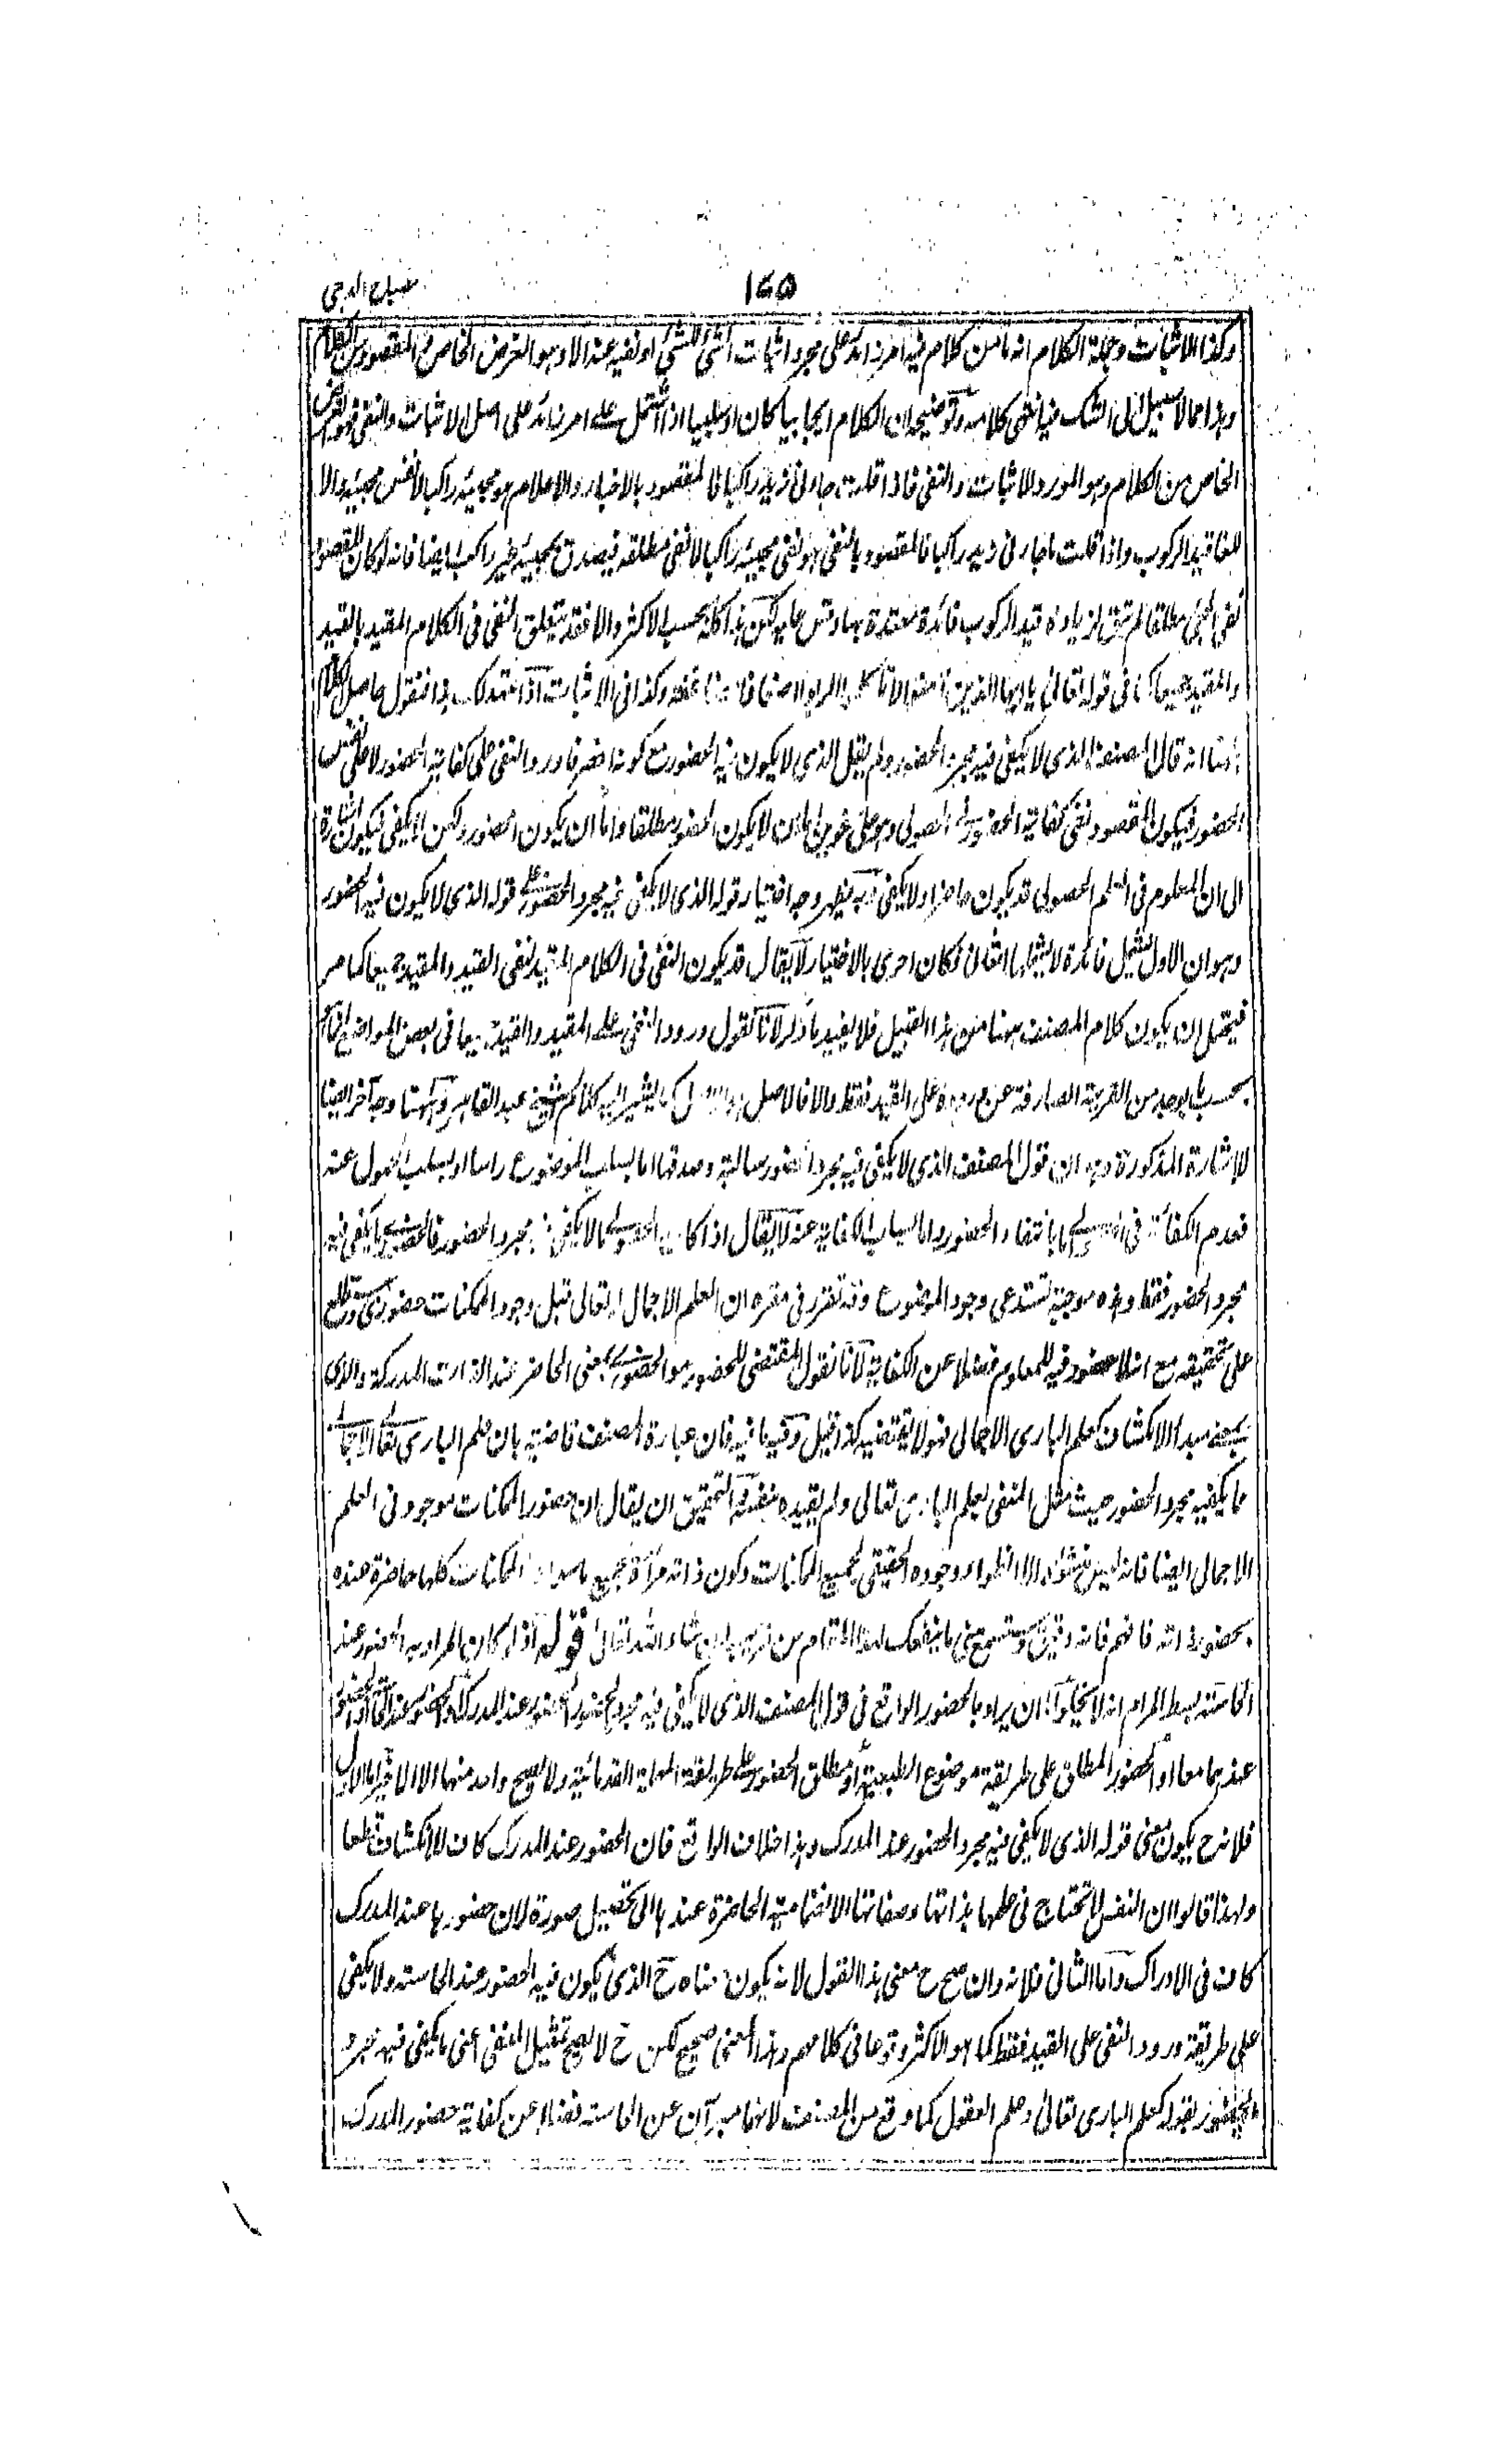 ١٦٥
مصباح الدجى
وكذا الاثبات وجملة الكلام انه ما من كلام فيه امر زائد على مجرد اثبات الشئ للشئ او نفيه عنه الا وهو الغرض الخاص و المقصود من الكلام
وهذا مما لا سبيل الى الشك فيه انتهى كلامه وتوضيحه ان الكلام ايجابيا كان او سلبيا اذا اشتمل على امر زائد على اصل الاثبات والنفى فهو الغرض
الخاص من الكلام وهو المورد للاثبات والنفى فاذا قلت جاءنى زيد راكبا فالمقصود بالاخبار والاعلام هو مجيئه راكبا لا نفس مجيئه والا
للغا قيد الركوب واذا قلت ما جاءنى زيد راكبا فالمقصود بالنفى هو نفى مجيئه راكبا لا نفى مطلقه فيصدق بمجيئه غير راكب ايضا فانه لو كان المقصود
نفى المجئ مطلقا لم تبق لزيادة قيد الركوب فائدة معتدة بها وقس عليه لكن هذا كله بحسب الاكثر والا فقد يتعلق النفى فى الكلام المقيد بالقيد
والمقيد جميعا كما فى قوله تعالى يا ايها الذين آمنوا لا تأكلوا الربوا اضعافا مضاعفة وكذا فى الاثبات اذا تمهد لك هذا فنقول حاصل الكلام
ههنا انه قال المصنف الذى لا يكفى فيه مجرد الحضور ولم يقل الذى لا يكون فيه الحضور مع كونه اخصر فاورد النفى على كفاية الحضور لا على نفس
الحضور فيكون المقصود نفى كفاية الحضور فى الحصولى وهو على نحوين اما بان لا يكون الحضور مطلقا واما ان يكون الحضور ولكن لا يكفى فيكون اشارة
الى ان المعلوم فى العلم الحصولى قد يكون حاضرا ولا يكفى وبه يظهر وجه اختيار قوله الذى لا يكفى فيه مجرد الحضور على قوله الذى لا يكون فيه الحضور
وهو ان الاول يشمل فائدة لا يشملها الثانى فكان احرى بالاختيار لا يقال قد يكون النفى فى الكلام المقيد لنفى القيد والمقيد جميعا كما مر
فيحتمل ان يكون كلام المصنف ههنا من هذا القبيل فلا يفيد ما ذكر لانا نقول ورود النفى على المقيد والقيد جميعا فى بعض المواضع انما هو
بحسب ما يوجد من القرينة الصارفة عن وروده على القيد فقط والا فالاصل هو الاول كما يشير اليه كلام الشيخ عبد القاهر وههنا وجه آخر ايضا
للاشارة المذكورة وهو ان قول المصنف الذى لا يكفى فيه مجرد الحضور سالبة وصدقها اما بسلب الموضوع راسا او بسلب المحمول عنه
فعدم الكفاية فى الحصولى اما بانتفاء الحضور واما بسلب الكفاية عنه لا يقال اذا كان الحصولى ما لا يكفى فيه مجرد الحضور فالحضورى ما يكفى فيه
مجرد الحضور فقط وهذه موجبة تستدعى وجود الموضوع وقد تقرر فى مقره ان العلم الاجمالى له تعالى قبل وجود الممكنات حضورى وستطلع
على تحقيقه مع انه لا حضور فيه للمعلوم فضلا عن الكفاية لانا نقول المقتضى للحضور هو الحضورى بمعنى الحاضر عند الذات المدركة والذى
بمعنى مبدا الانكشاف كعلم البارى الاجمالى فهو لا يقتضيه كذا قيل وفيه ما فيه فان عبارة المصنف قاضية بان علم البارى تعالى الاجمالى
ما يكفيه مجرد الحضور حيث مثل المنفى بعلم البارى تعالى ولم يقيده بنفسه فالتحقيق ان يقال ان حضور الممكنات موجود فى العلم
الاجمالى ايضا فانه ليس منشؤه الا انطواء وجوده الحقيقى لجميع الممكنات وكون ذاته مرآة لجميع ما سواه الممكنات كلها حاضرة عنده
بحضور ذاته فافهم فانه دقيق وستسمع منى ما ينفعك لهذا المقام من قريب ان شاء الله تعالى قوله اذا كان المراد به الحضور عند
الحاسة بسط المرام انه لا يخلو اما ان يراد بالحضور الواقع فى قول المصنف الذى لا يكفى فيه مجرد الحضور الحضور عند المدرك او الحضور عند الحاسة او الحضور
عندهما معا او الحضور المطلق على طريقة موضوع الطبيعية او مطلق الحضور على طريقة المهملة القدمائية ولا يصح واحد منها الا الاخير اما الاول
فلانه ح يكون معنى قوله الذى لا يكفى فيه مجرد الحضور عند المدرك وهذا خلاف الواقع فان الحضور عند المدرك كاف للانكشاف قطعا
ولهذا قالوا ان النفس لا تحتاج فى علمها بذاتها وصفاتها الانضمامية الحاضرة عندها الى تحصيل صورة لان حضورها عند المدرك
كاف فى الادراك واما الثانى فلانه وان صح ح معنى هذا القول لانه يكون معناه ح الذى يكون فيه الحضور عند الحاسة ولا يكفى
على طريقة ورود النفى على القيد فقط كما هو الاكثر وقوعا فى كلامهم وهذا المعنى صحيح لكن ح لا يصح تمثيل المنفى اعنى ما يكفى فيه مجرد
الحضور بقوله كعلم البارى تعالى وعلم العقول كما وقع من المصنف لانهما مبرآن عن الحاسة فضلا عن كفاية حضور المدرك